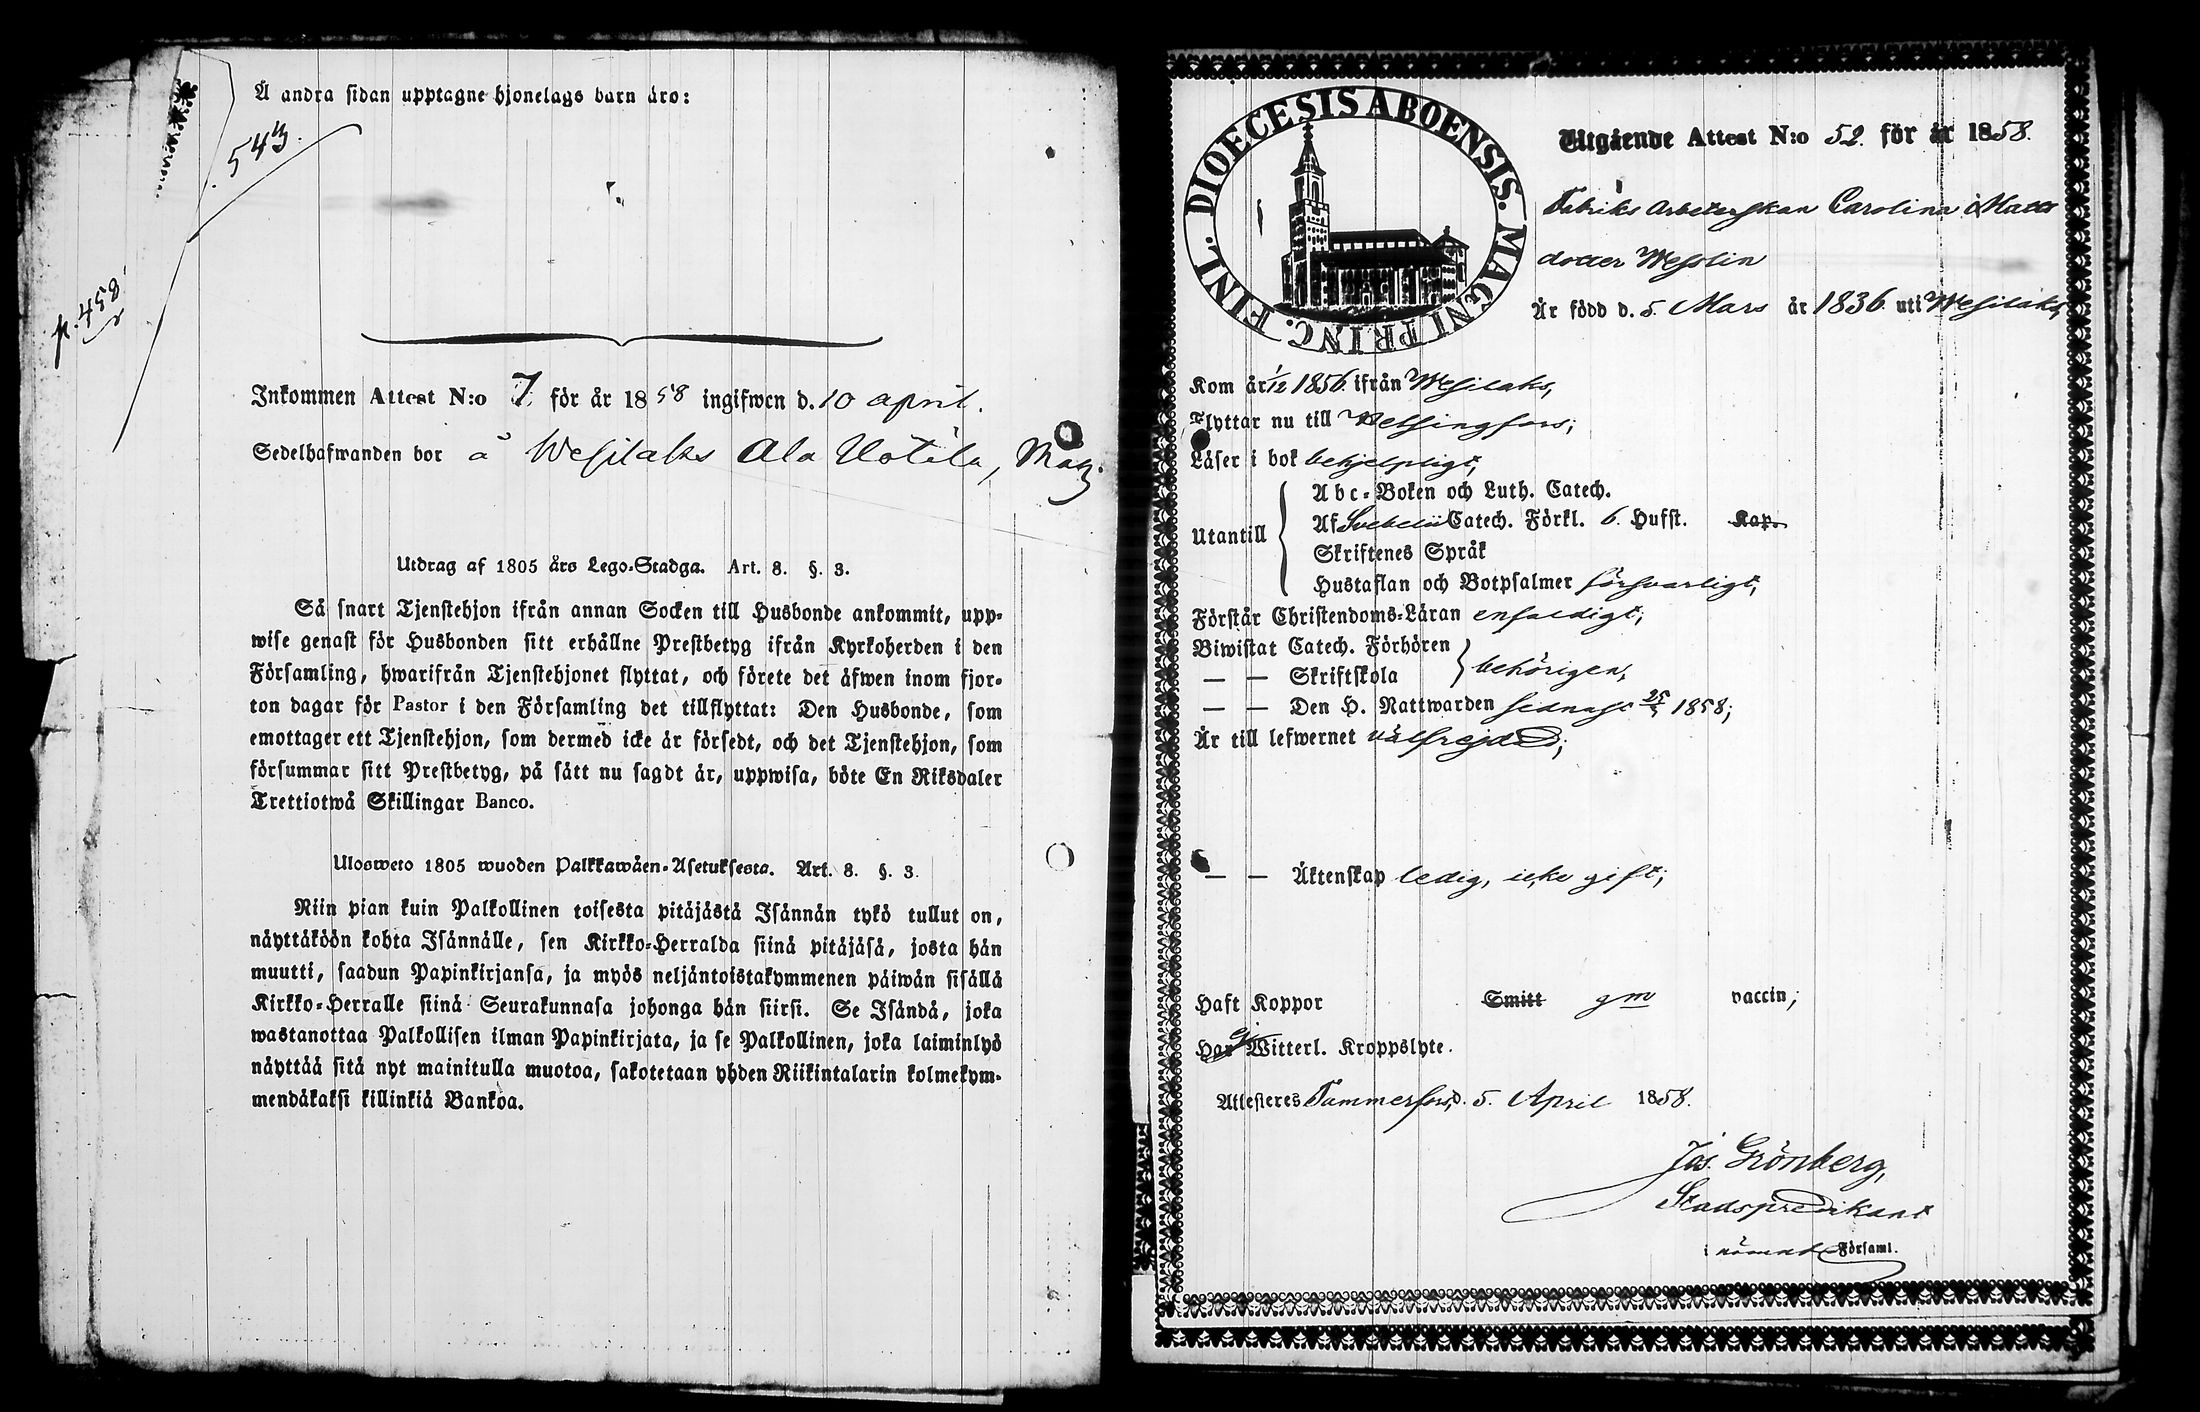 Å andra sidan upptagne hjonelags barn äro:
543.
p. 458
Inkommen Attest N:o 7, för år 1858 ingifwen d. 10 april.
Sedelhafwanden bor å Wesilaks Ala Uotila, Mäg.
Utdrag af 1805 års Lego-Stadga. Art. 8. §. 3.
Så snart Tjenstehjon ifrån annan Socken till Husbonde ankommit, upp-
wise genast för Husbonden sitt erhållne Prestbetyg ifrån Kyrkoherden i den
Församling, hwarifrån Tjenstehjonet flyttat, och förete det äfwen inom fjor-
ton dagar för Pastor i den Församling det tillflyttat: Den Husbonde, som
emottager ett Tjenstehjon, som dermed icke är försedt, och det Tjenstehjon, som
försummar sitt Prestbetyg, på sätt nu sagdt är, uppwisa, böte En Riksdaler
Trettiotwå Skillingar Banco.
Ulosweto 1805 wuoden Palkkawäen-Asetuksesta. Art. 8. §. 3.
Niin pian kuin Palkollinen toisesta pitäjästä Isännän tykö tullut on,
näyttäköön kohta Isännälle, sen Kirkko-Herralda siinä pitäjäsä, josta hän
muutti, saadun Papinkirjansa, ja myös neljäntoistakymmenen päiwän sisällä
Kirkko-Herralle siinä Seurakunnasa johonga hän siirsi. Se Isändä, joka
wastanottaa Palkollisen ilman Papinkirjata, ja se Palkollinen, joka laiminlyö
näyttää sitä nyt mainitulla muotoa, sakotetaan yhden Riikintalarin kolmekym-
mendäkaksi killinkiä Bankoa.
DIOECESIS ABOENSIS. MAGNI PRINC. FINL.
Utgående Attest N:o 52. för år 1858.
Fabriks Arbeterskan Carolina Matts
dotter Wesslin
Är född d. 5. Mars år 1836. uti Wesilaks,
Kom år 1/12 1856. ifrån Wesilaks,
Flyttar nu till Helsingfors;
Läser i bok behjelpligt,
Utantill
Abc-Boken och Luth. Catech.
Af Svebelii Catech. Förkl. 6. Hufst. Kap.
Skriftenes Språk
Hustaflan och Botpsalmer försvarligt,
Förstår Christendoms-Läran enfaldigt,
Biwistat Catech. Förhören
— — Skriftskola behörigen,
— — Den H. Nattwarden sednast 1858;
Är till lefwernet välfrejdad;
— — Äktenskap ledig, icke gift;
Haft Koppor Smitt gm vaccin;
Har ej Witterl. Kroppslyte.
Attesteres Tammerfors, d. 5. April 1858.
Jos. Grönberg,
Stadspredikant
i nämnd Församl.